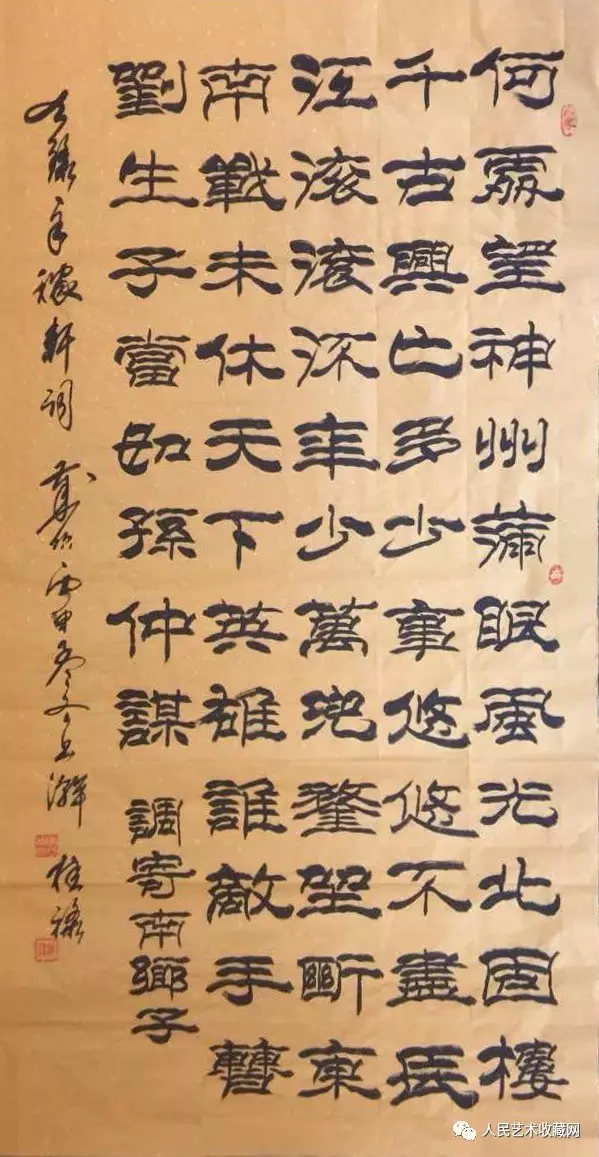 何處望神州滿眼風光北固樓
千古興亡多少事悠悠不盡長
江滾滾流年少萬兜鍪坐斷東
南戰未休天下英雄誰敵手曹
劉生子當如孫仲謀 調寄南鄉子
右錄辛稼軒詞 丙申 桂祿
人民艺术收藏网